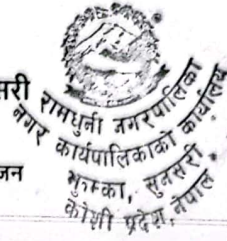 सरी
रामधुनी नगरपालिका
नगर कार्यपालिकाको कार्यालय
जन
झुम्का, सुनसरी
कोशी प्रदेश, नेपाल